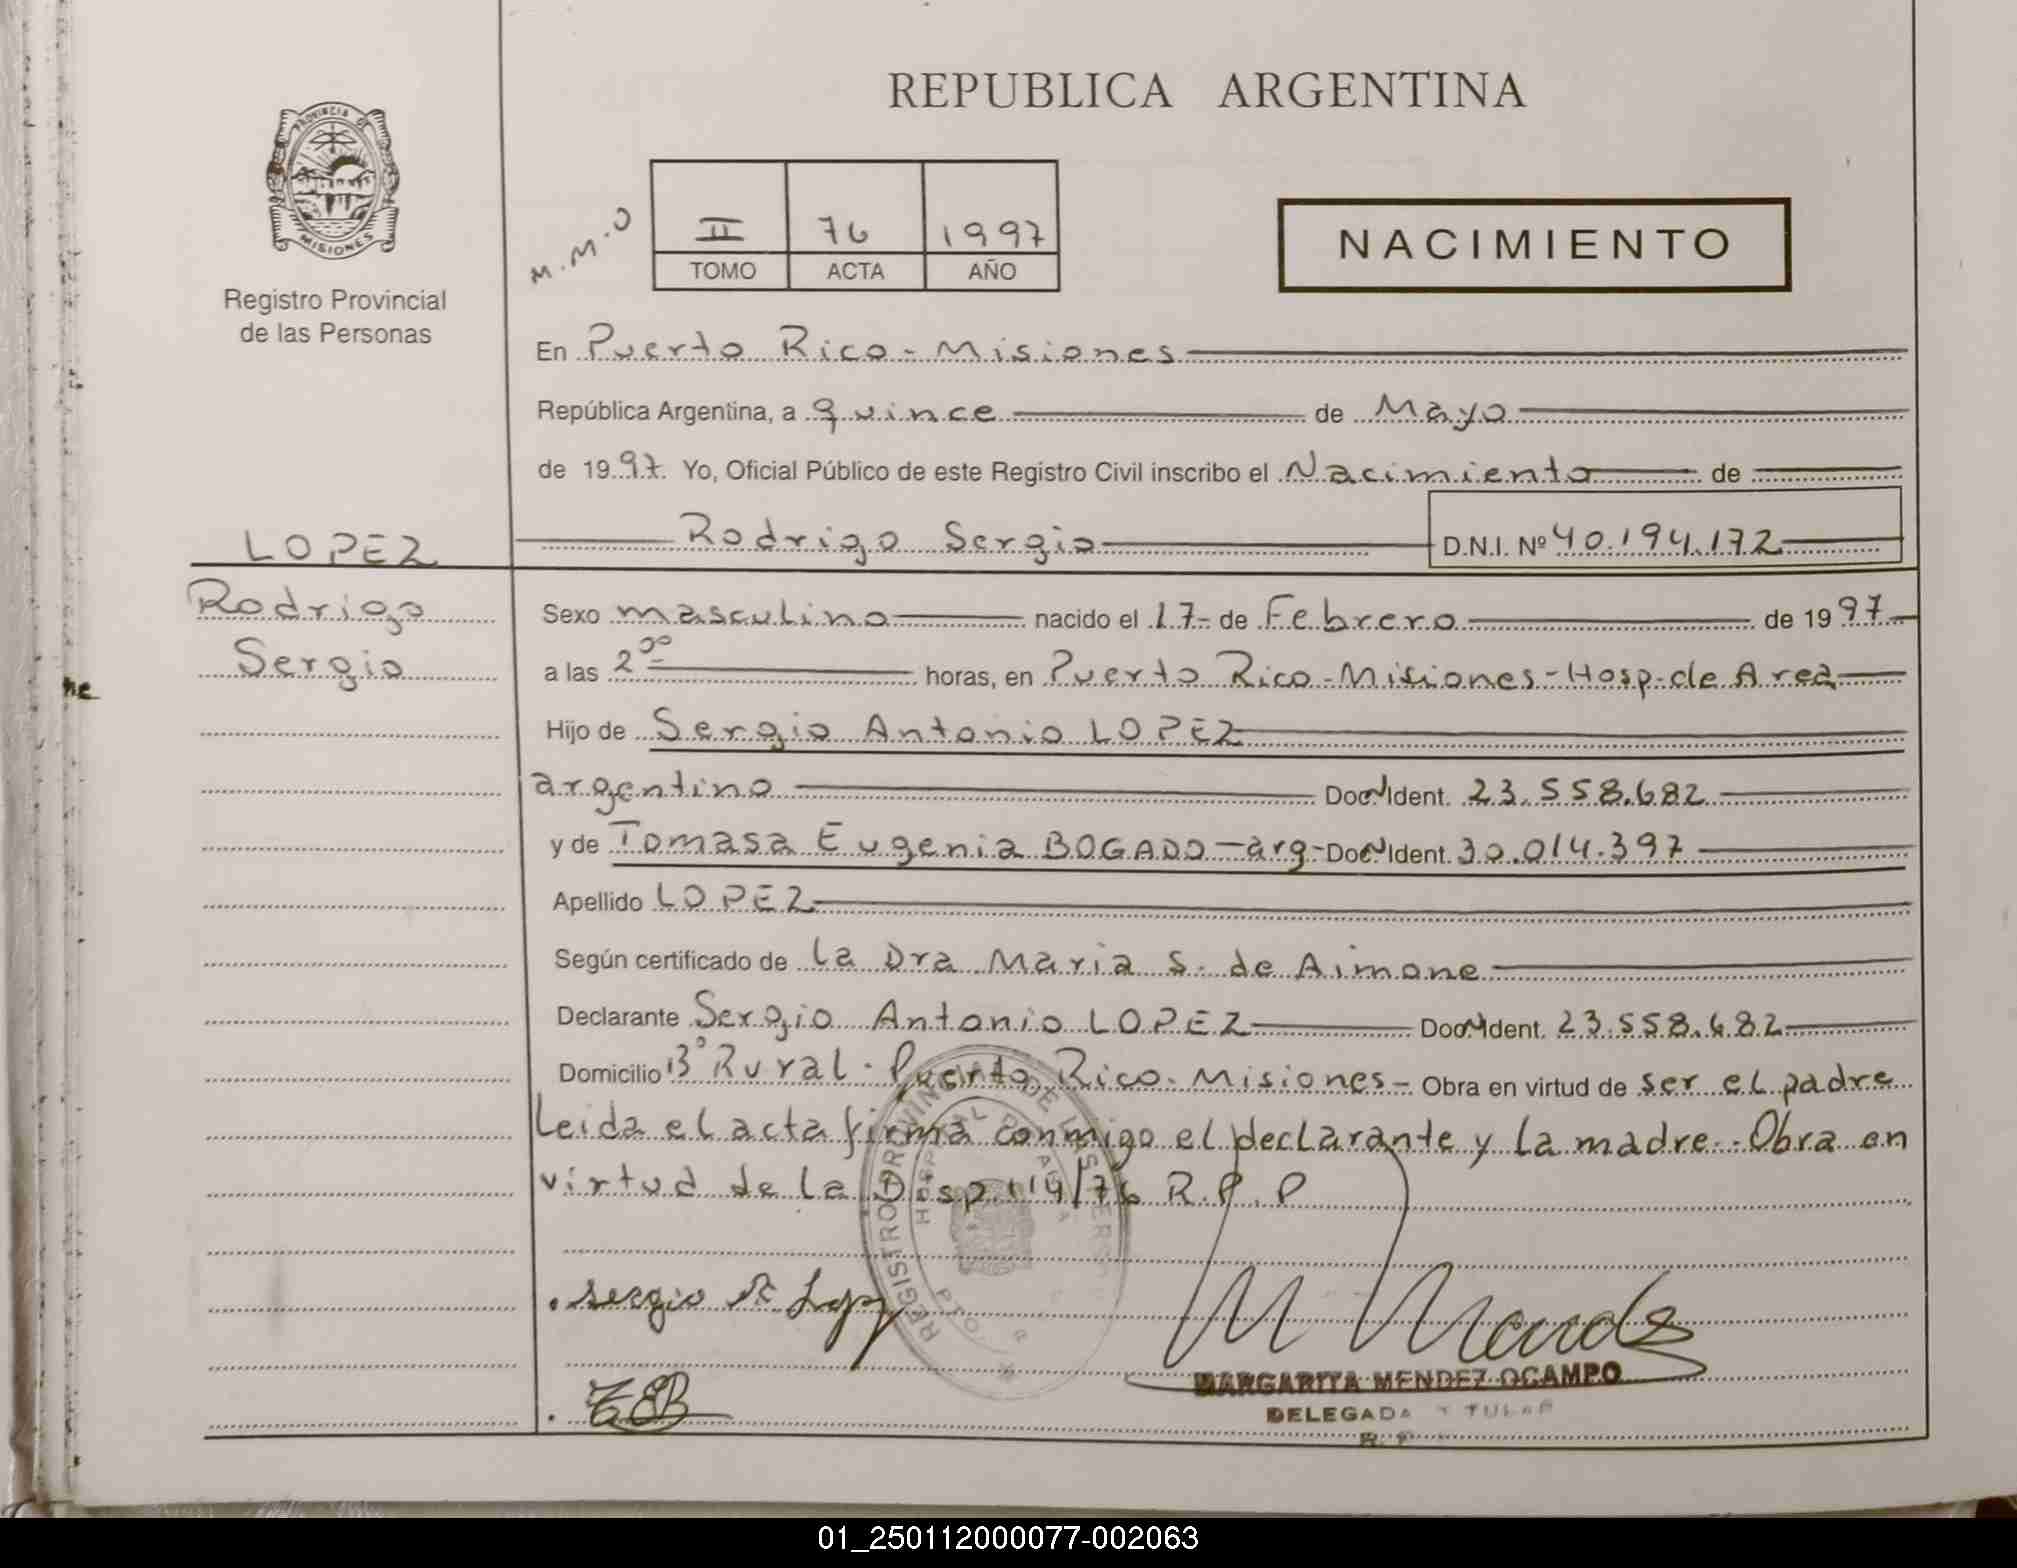 REPUBLICA ARGENTINA
PROVINCIA DE MISIONES
Registro Provincial
de las Personas
M.M.O
II 76 1997
TOMO ACTA AÑO
NACIMIENTO
En Puerto Rico - Misiones
República Argentina, a quince de Mayo
de 1997. Yo, Oficial Público de este Registro Civil inscribo el Nacimiento de
LOPEZ
Rodrigo Sergio D.N.I. Nº 40.194.172
Rodrigo
Sergio
Sexo masculino nacido el 17 de Febrero de 1997
a las 2 00 horas, en Puerto Rico - Misiones - Hosp. de Area
Hijo de Sergio Antonio LOPEZ
argentino Doc N Ident. 23.558.682
y de Tomasa Eugenia BOGADO - arg - Doc N Ident. 30.014.397
Apellido LOPEZ
Según certificado de la Dra Maria S. de Aimone
Declarante Sergio Antonio LOPEZ Doc N Ident. 23.558.682
Domicilio Bº Rural - Puerto Rico - Misiones - Obra en virtud de ser el padre
Leida el acta firma conmigo el declarante y la madre.. Obra en
virtud de la Disp. 114/76 R.P.P
REGISTRO PROVINCIAL DE LAS PERSONAS
HOSPITAL DE AREA
PTO.
Sergio A Lopez
TEB
M Mendez
MARGARITA MENDEZ OCAMPO
DELEGADA TITULAR
R. P.
01_250112000077-002063